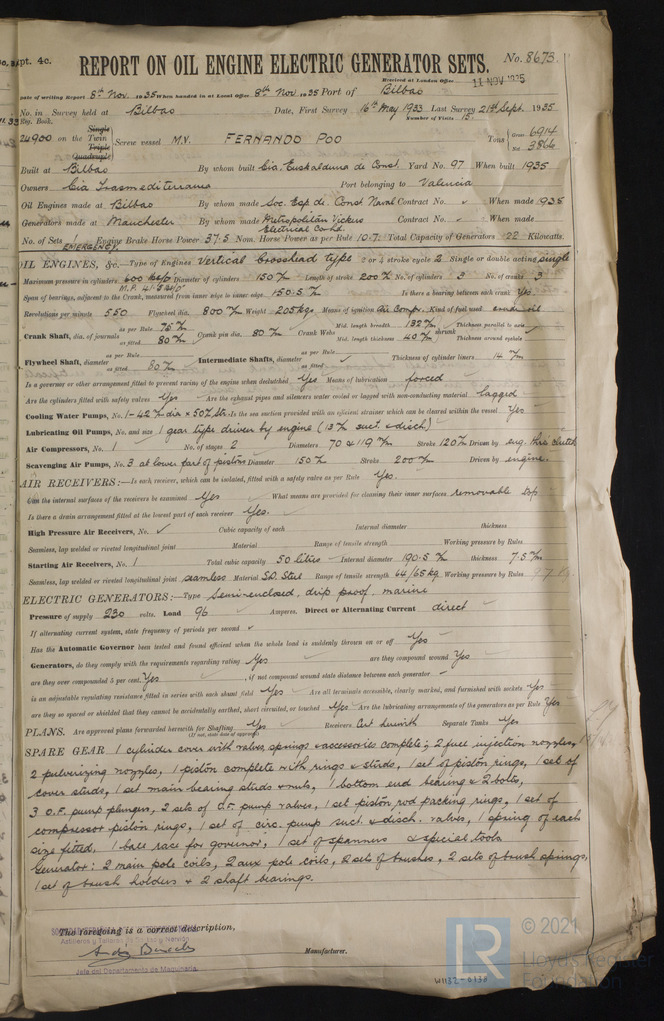 pt. 4c.
REPORT ON OIL ENGINE ELECTRIC GENERATOR SETS.
No. 8673.
Received at London Office 11 NOV 1935
Date of writing Report 8th Nov. 1935 When handed in at Local Office 8th Nov. 1935 Port of Bilbao
No. in Survey held at Bilbao Date, First Survey 16th May 1933 Last Survey 21st Sept. 1935
Reg. Book. Number of Visits 15
24900 on the Single Twin Triple Quadruple Screw vessel M.V. FERNANDO POO Tons Gross 6914 Net 3866
Built at Bilbao By whom built Cia. Euskalduna de Const. Yard No. 97 When built 1935
Owners Cia Trasmediterranea Port belonging to Valencia
Oil Engines made at Bilbao By whom made Soc. Esp. de Const Naval Contract No. ✓ When made 1935
Generators made at Manchester By whom made Metropolitan Vickers Electrical Co Ltd. Contract No. ✓ When made
No. of Sets EMERGENCY Engine Brake Horse Power 37.5 Nom. Horse Power as per Rule 10.7 Total Capacity of Generators 22 Kilowatts.
OIL ENGINES, &c.—Type of Engines Vertical crosshead type 2 or 4 stroke cycle 2 Single or double acting single
Maximum pressure in cylinders Diameter of cylinders 150 m/m Length of stroke 200 m/m No. of cylinders 3 No. of cranks 3
Span of bearings, adjacent to the Crank, measured from inner edge to inner edge 150.5 m/m Is there a bearing between each crank Yes
Revolutions per minute 550 Flywheel dia. 800 m/m Weight 205 kgs Means of ignition Air Compr. Kind of fuel used crude oil
Crank Shaft, dia. of journals as per Rule 75 m/m as fitted 80 m/m Crank pin dia. 80 m/m Crank Webs Mid. length breadth 132 m/m Mid. length thickness 40 m/m shrunk Thickness parallel to axis Thickness around eyehole
Flywheel Shaft, diameter as per Rule as fitted 80 m/m Intermediate Shafts, diameter as per Rule ✓ as fitted Thickness of cylinder liners 14 m/m
Is a governor or other arrangement fitted to prevent racing of the engine when declutched Yes Means of lubrication forced
Are the cylinders fitted with safety valves Yes Are the exhaust pipes and silencers water cooled or lagged with non-conducting material lagged
Cooling Water Pumps, No. 1-42 m/m dia x 50 m/m St. Is the sea suction provided with an efficient strainer which can be cleared within the vessel Yes
Lubricating Oil Pumps, No. and size 1 gear type driven by engine (13 m/m suct. & disch)
Air Compressors, No. 1 No. of stages 2 Diameters 70 & 119 m/m Stroke 120 m/m Driven by eng. thro clutch
Scavenging Air Pumps, No. 3 at lower part of piston Diameter 150 m/m Stroke 200 m/m Driven by engine.
AIR RECEIVERS:—Is each receiver, which can be isolated, fitted with a safety valve as per Rule Yes.
Can the internal surfaces of the receivers be examined Yes What means are provided for cleaning their inner surfaces removable top
Is there a drain arrangement fitted at the lowest part of each receiver Yes.
High Pressure Air Receivers, No. ✓ Cubic capacity of each Internal diameter thickness
Seamless, lap welded or riveted longitudinal joint Material Range of tensile strength Working pressure by Rules
Starting Air Receivers, No. 1 Total cubic capacity 50 litres Internal diameter 190.5 m/m thickness 7.5 m/m
Seamless, lap welded or riveted longitudinal joint seamless Material S.D. Steel Range of tensile strength 44/65 kg Working pressure by Rules
ELECTRIC GENERATORS:—Type Semi-enclosed, drip proof, marine
Pressure of supply 230 volts. Load 96 Amperes. Direct or Alternating Current direct
If alternating current system, state frequency of periods per second ✓
Has the Automatic Governor been tested and found efficient when the whole load is suddenly thrown on or off Yes
Generators, do they comply with the requirements regarding rating Yes are they compound wound Yes
are they over compounded 5 per cent. Yes, if not compound wound state distance between each generator
is an adjustable regulating resistance fitted in series with each shunt field Yes Are all terminals accessible, clearly marked, and furnished with sockets Yes
are they so spaced or shielded that they cannot be accidentally earthed, short circuited, or touched Yes Are the lubricating arrangements of the generators as per Rule Yes
PLANS. Are approved plans forwarded herewith for Shafting Yes Receivers Cert herewith Separate Tanks Yes
(If not, state date of approval)
SPARE GEAR 1 cylinder cover with valves, springs & accessories complete; 2 fuel injection nozzles,
2 pulverizing nozzles, 1 piston complete with rings & studs, 1 set of piston rings, 1 set of
cover studs, 1 set main bearing studs & nuts, 1 bottom end bearing & 2 bolts,
3 O.F. pump plungers, 2 sets of O.F. pump valves, 1 set piston rod packing rings, 1 set of
compressor piston rings, 1 set of circ. pump suct. & disch. valves, 1 spring of each
size fitted, 1 ball race for governor, 1 set of spanners & special tools
Generator: 2 main pole coils, 2 aux pole coils, 2 sets of brushes, 2 sets of brush springs,
1 set of brush holders & 2 shaft bearings.
The foregoing is a correct description,
Manufacturer.
Jefe del Departamento de Maquinaria.
W1132-0130
LR
© 2021
Lloyd's Register
Foundation